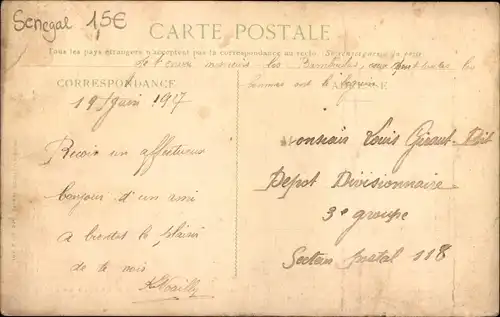 Senegal 15€
CARTE POSTALE
Tous les pays étrangers n'acceptent pas la correspondance au recto. Se renseigner à la poste
les Bambaras,
CORRESPONDANCE
ADRESSE
femmes ont le
19 Juin 1917
Recois un affectueux
bonjour d'un ami
a bientot le plaisir
de te voir
Monsieur Louis Giraut-
Depot Divisionnaire
3e groupe
Secteur postal 118